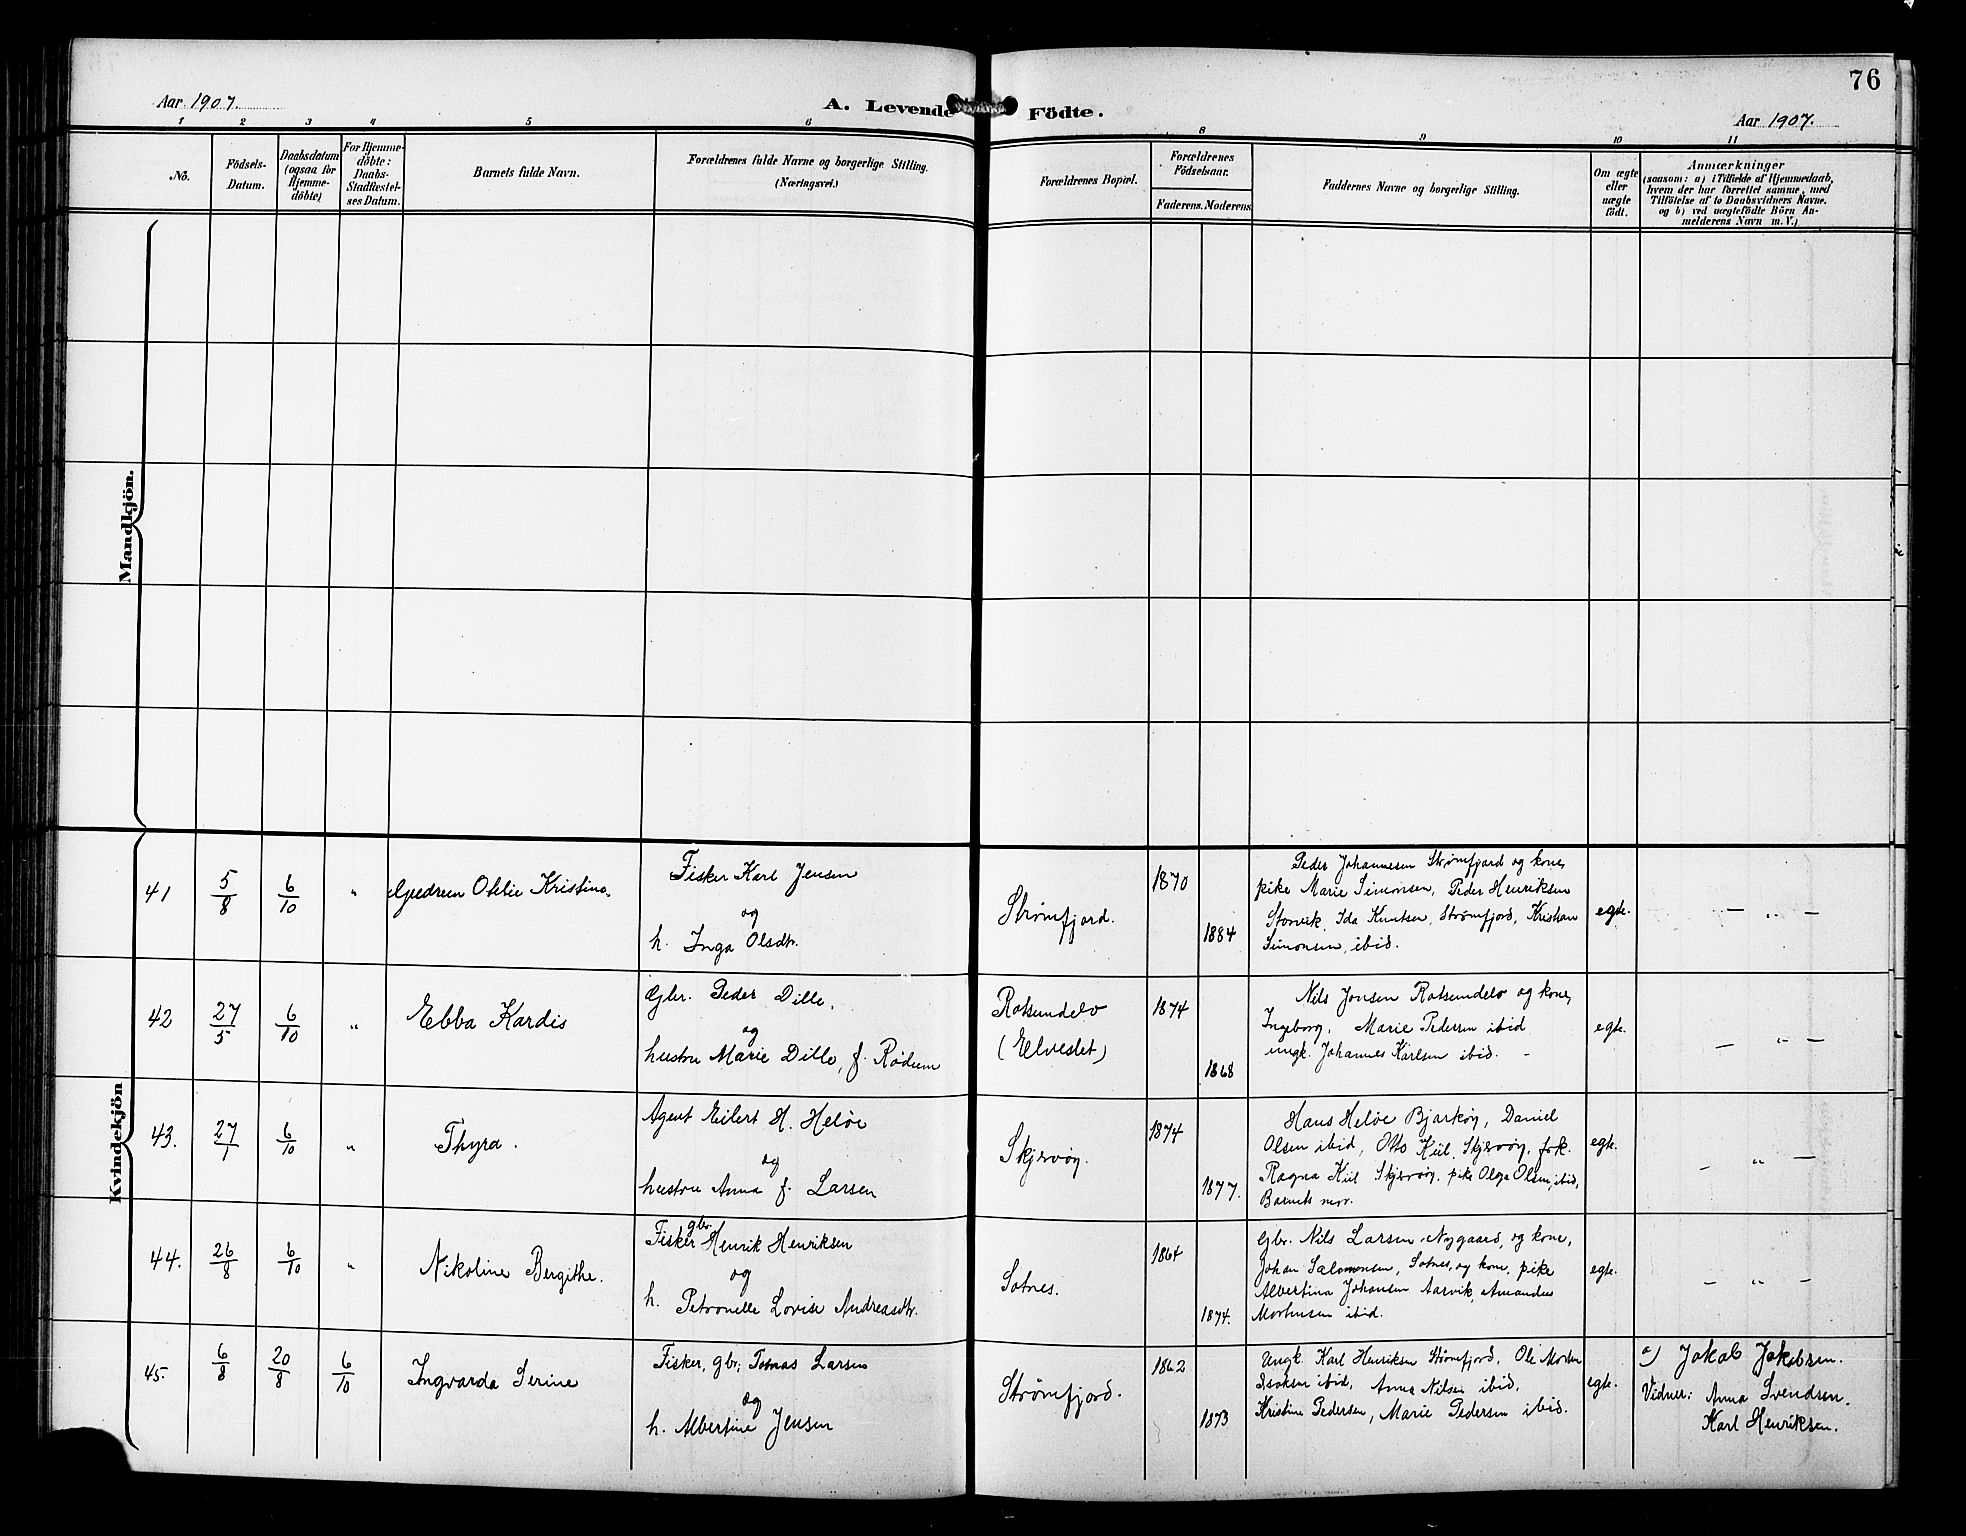 76
Aar 1907.
A. Levende Födte.
Aar 1907.
1 2 3 4 5 6 8 9 10 11
No.
Födsels-Datum.
Daabsdatum (ogsaa for Hjemme-döbte)
For Hjemme-döbte: Daabs-Stadfæstel-ses Datum.
Barnets fulde Navn.
Forældrenes fulde Navne og borgerlige Stilling.
(Næringsvei.)
Forældrenes Bopæl.
Forældrenes Födselsaar.
Faderens. Moderens.
Faddernes Navne og borgerlige Stilling.
Om ægte eller uægte födt.
Anmærkninger
(saasom: a) i Tilfælde af Hjemmedaab,
hvem der har forrettet samme, med
Tilföielse af to Daabsvidners Navne.
og b) ved uægtefödte Börn An-
melderens Navn m. V.)
Mandkjön.
Kvindekjön
41 5/8 6/10 " Otelie Kristine
Fisker Karl Jensen
og
h. Inga Olsdtr.
Strømfjord.
1870
1884
Peder Johannessen Strømfjord og kone,
pike Marie Simonsen, Peder Henriksen
Storvik, Ida Knutsen, Strømfjord, Kristian
Simonsen, ibid.
egte.
— „ —
42 27/5 6/10 " Ebba Kardis
Gbr. Peder Dille,
og
hustru Marie Dille, f. Rødum
Rotsundelv
(Elveslet)
1874
1868
Nils Jensen Rotsundelv og kone,
Ingeborg, Marie Pedersen ibid
ungk. Johannes Karlsen ibid. -
egte.
— „ —
43. 27/1 6/10 " Thyra.
Agent Eilert H. Heløe
og
hustru Anna f. Larsen
Skjervøy.
1874
1877.
Hans Heløe Bjarkøy, Daniel
Olsen ibid, Otto Kiil, Skjervøy, frk.
Ragna Kiil Skjervøy, pike Olga Olsen, ibid,
Barnets mor.
egte.
— „ —
44. 26/8 6/10 " Nikoline Bergithe.
gbr.
Fisker Henrik Henriksen
og
h. Petronelle Lovise Andreasdtr.
Sotnes.
1864
1874.
Gbr. Nils Larsen Nygaard, og kone,
Johan Salomonsen, Sotnes, og kone, pike
Albertina Johansen Aarvik, Amandus
Mortensen ibid.
egte.
— „ —
45. 6/8 20/8 6/10 Ingvarda Serine
Fisker, gbr, Tomas Larsen
og
h. Albertine Jensen
Strømfjord.
1862
1873
Ungk. Karl Henriksen Strømfjord, Ole Morten
Isaksen ibid, Anna Nilsen ibid,
Kristine Pedersen, Marie Pedersen ibid.
egte.
a) Jakob Jakobsen.
Vidner: Anna Svendsen.
Karl Henriksen.